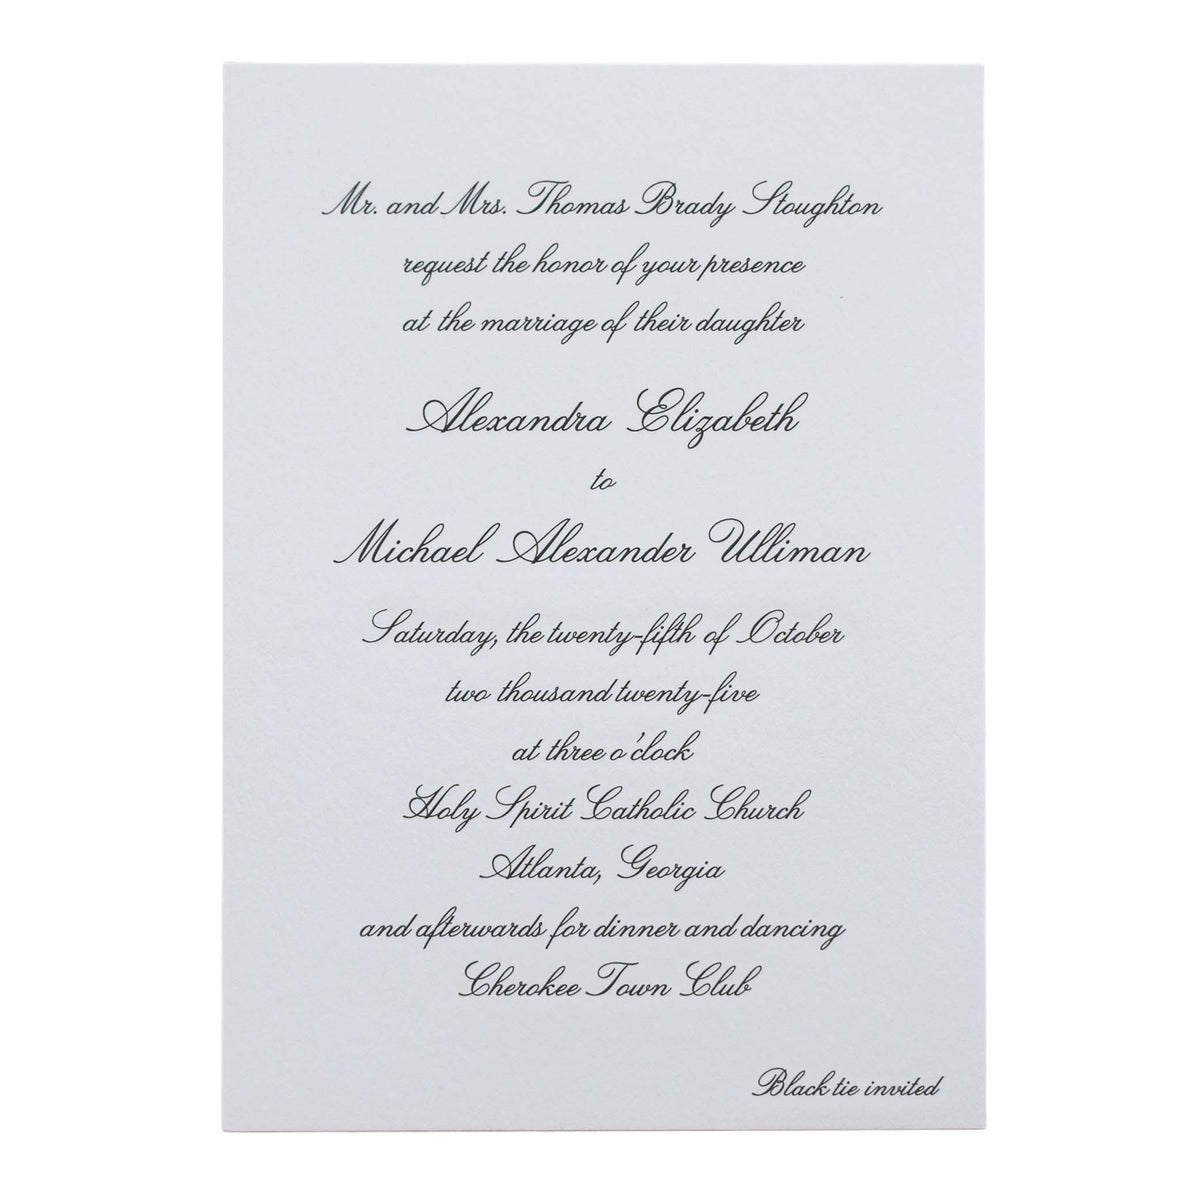 Mr. and Mrs. Thomas Brady Stoughton
request the honor of your presence
at the marriage of their daughter
Alexandra Elizabeth
to
Michael Alexander Ulliman
Saturday, the twenty-fifth of October
two thousand twenty-five
at three o'clock
Holy Spirit Catholic Church
Atlanta, Georgia
and afterwards for dinner and dancing
Cherokee Town Club
Black tie invited